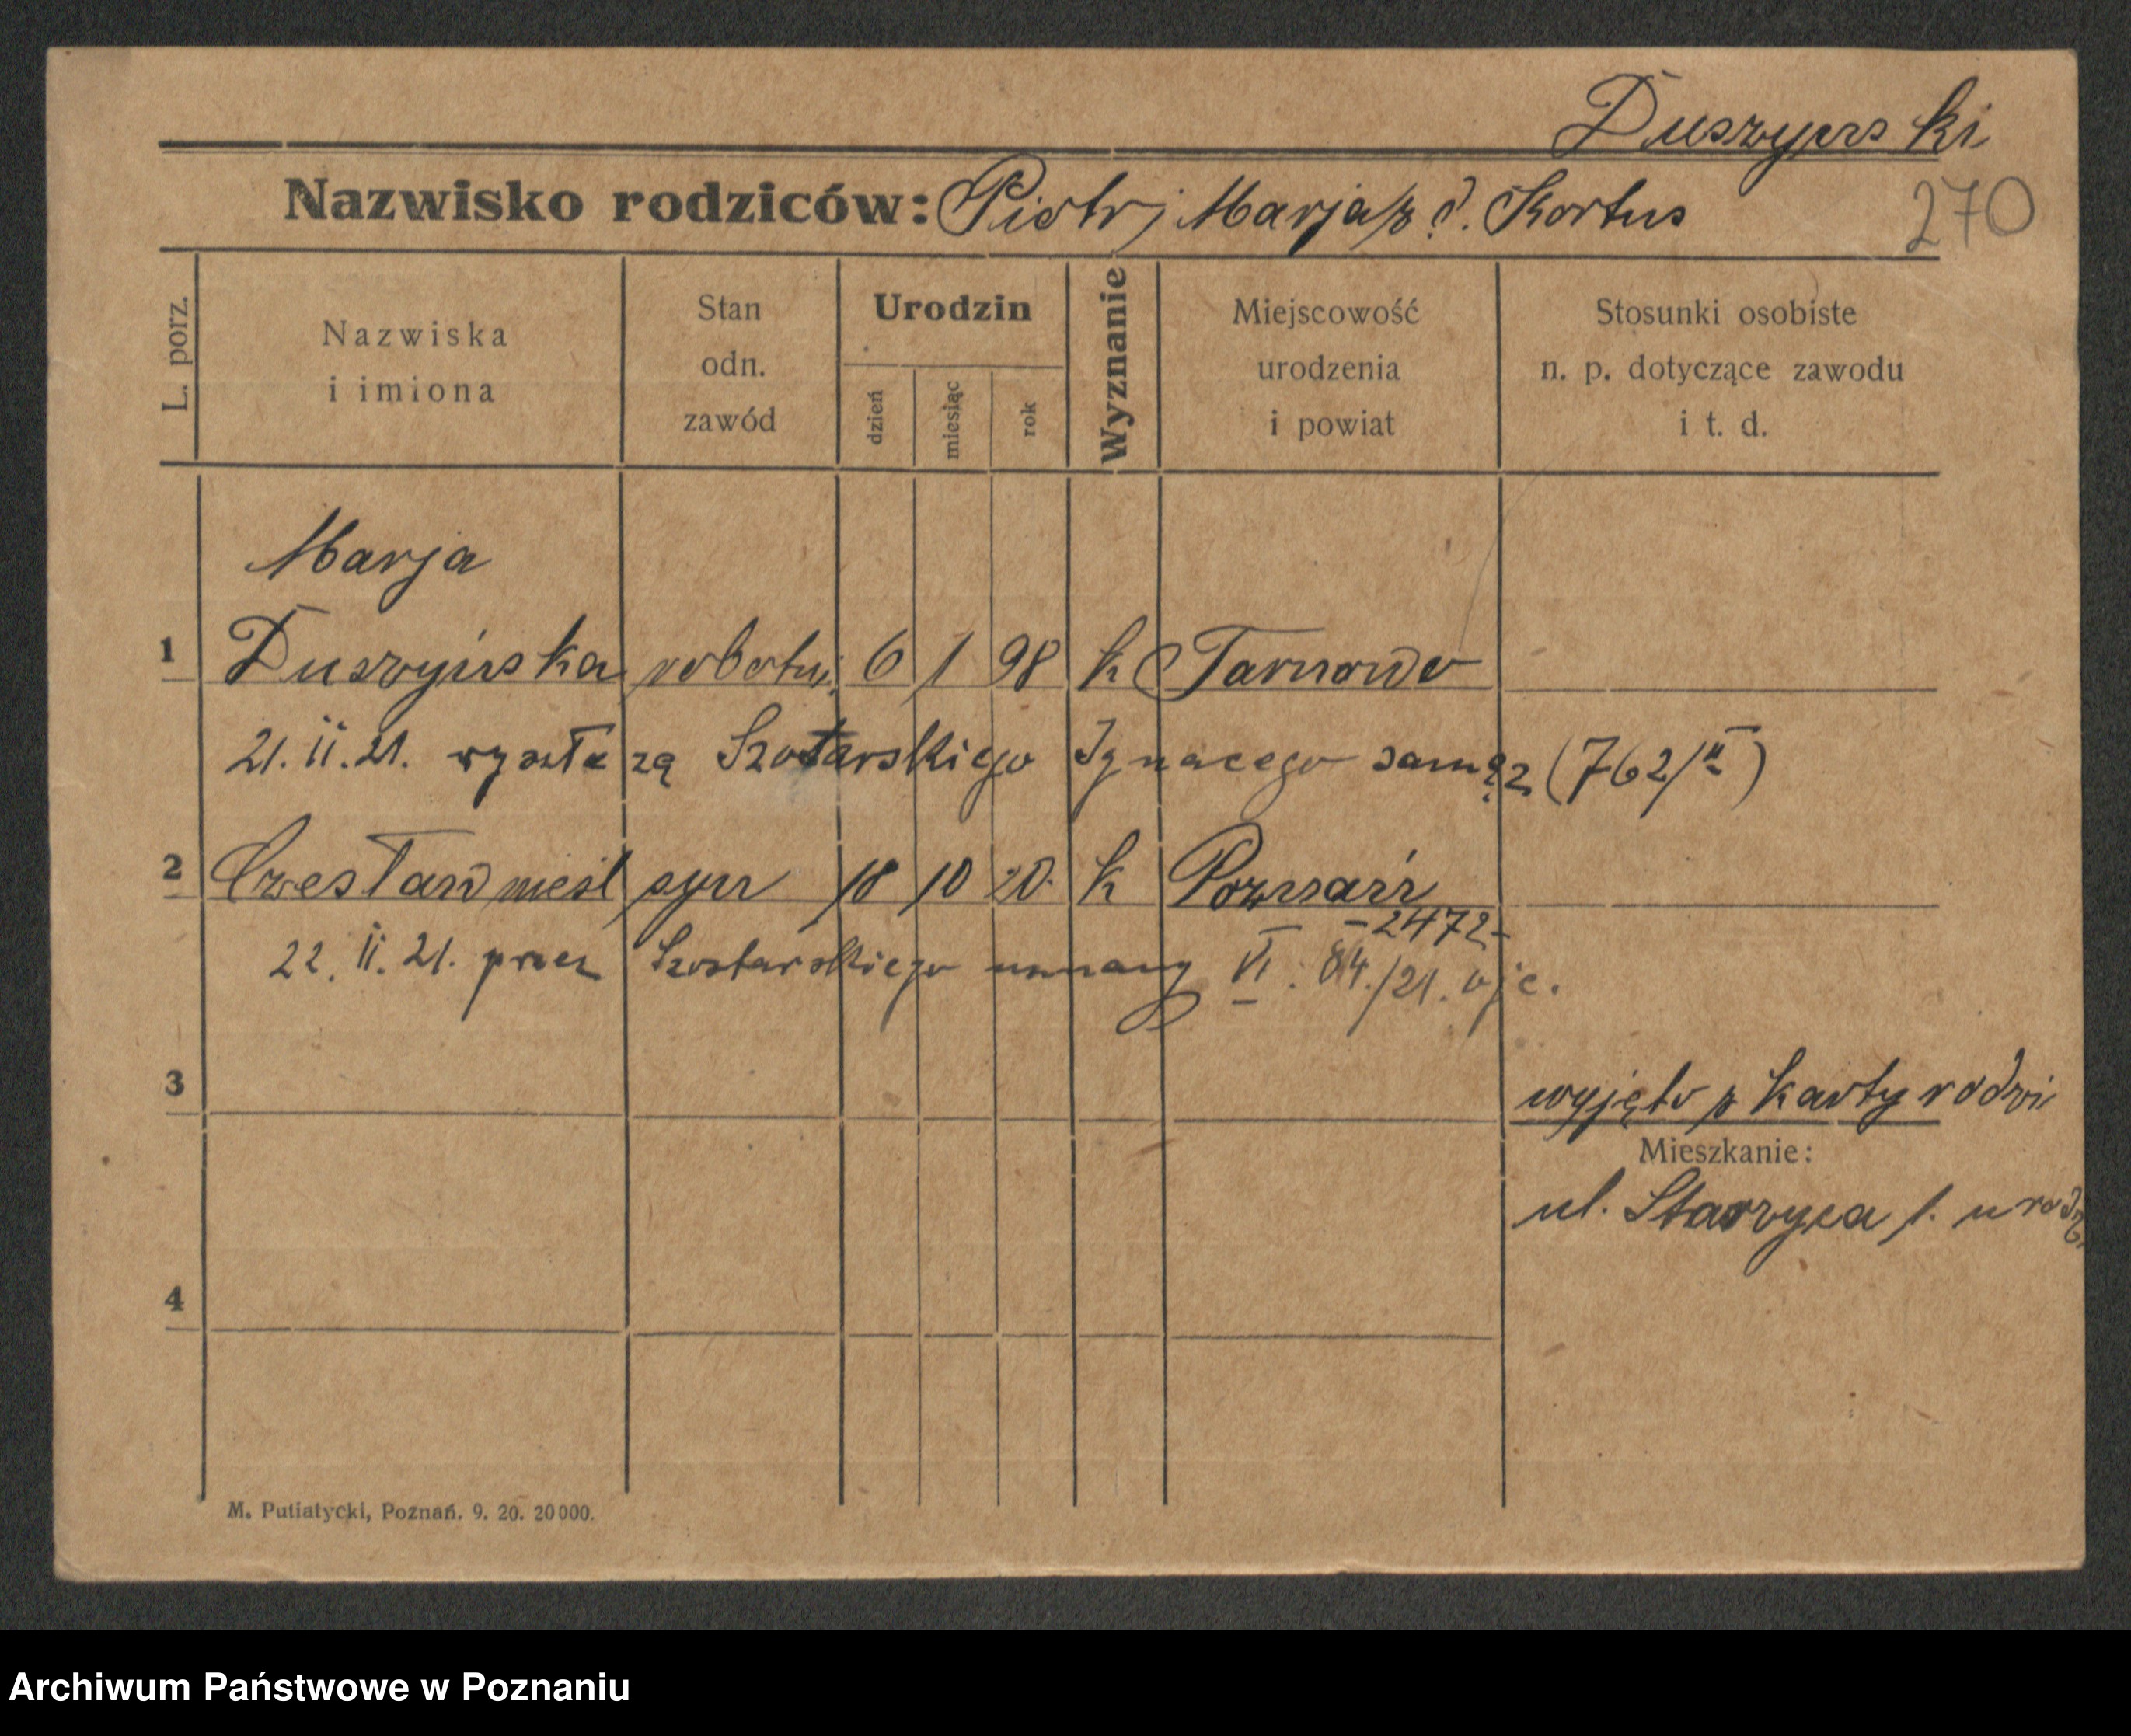 Duszyński
Nazwisko rodziców: Piotr, Marja z d. Kortus
270
L. porz.
Nazwiska
i imiona
Stan
odn.
zawód
Urodzin
dzień
miesiąc
rok
Wyznanie
Miejscowość
urodzenia
i powiat
Stosunki osobiste
n. p. dotyczące zawodu
i t. d.
Marja
1 Duszyńska robotn. 6 1 98 k Tarnowo
21. II. 21. wyszła za Szotarskiego Ignacego zamąż (762/II)
2 Czesław nieśl syn 18 10 20. k Poznań
-2472-
22. II. 21. przez uznany VI. 84./21.
3
wyjęto z karty rodzi
Mieszkanie:
ul. 1. u rodz.
4
M. Putiatycki, Poznań. 9. 20. 20000.
Archiwum Państwowe w Poznaniu